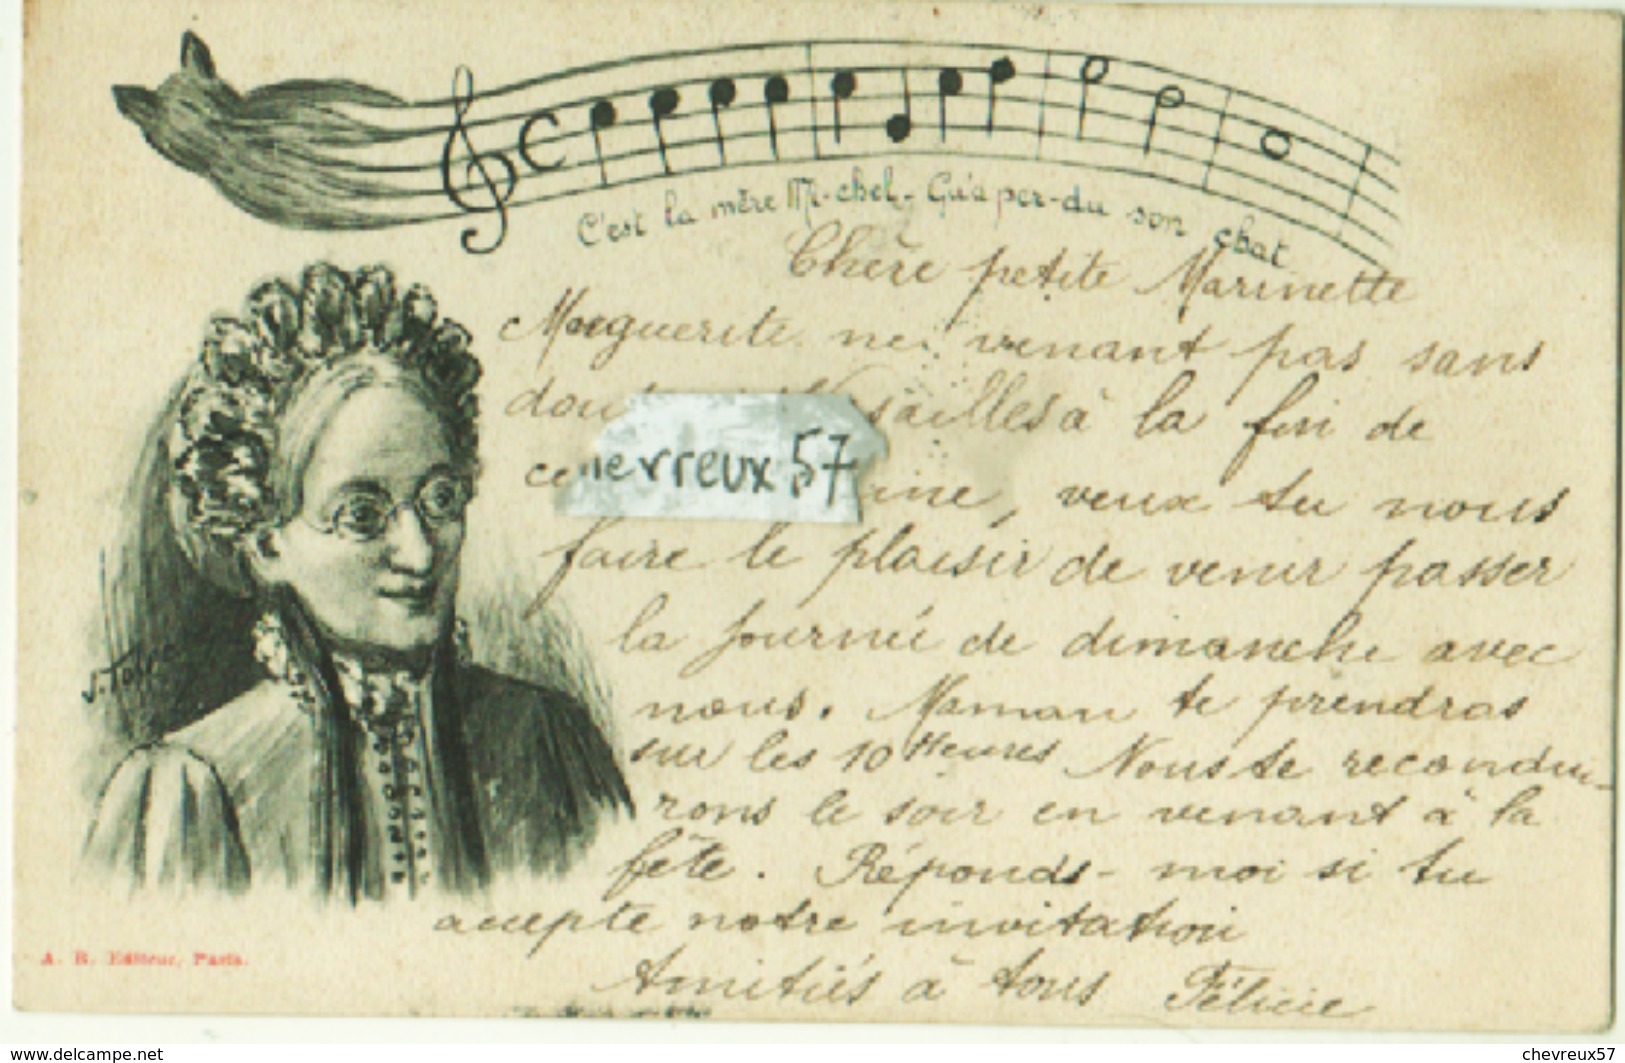 C'est la mère Mi-chel- Qu'a per-du son chat
Chère petite Marinette
Marguerite ne venant pas sans
à la fin de
chevreux 57
veux tu nous
faire le plaisir de venir passer
la journée de dimanche avec
nous. Maman te prendras
sur les 10 Heures Nous te recondui-
rons le soir en venant à la
fête. Réponds-moi si tu
accepte notre invitation
Amitiés à tous Félicie
A. R. Editeur, Paris.
www.delcampe.net
chevreux57